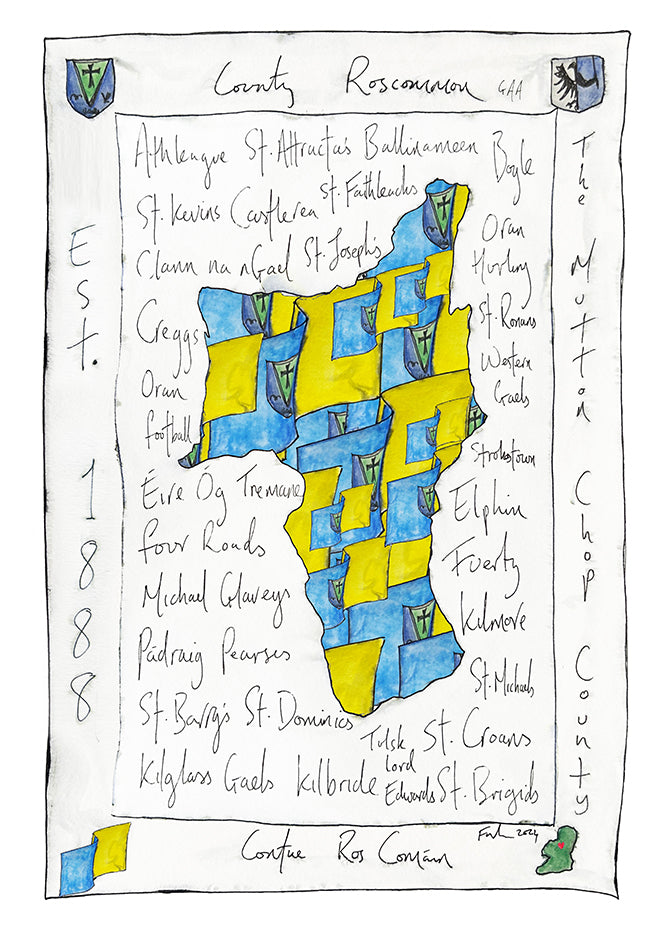 County Roscommon GAA
Est. 1888
The Mutton Chop County
Athleague St. Attracta's Ballinameen Boyle
St. Kevins Castlerea St. Faithleachs
Oran
Hurling
Clann na nGael St. Joseph's
Creggs
St. Ronans
Western
Gaels
Oran
football
Strokestown
Éire Óg Tremane
Elphin
Four Roads
Fuerty
Michael Glaveys
Kilmore
Pádraig Pearses
St. Michaels
St. Barry's St. Dominics
Tulsk
Lord
Edwards
St. Croans
Kilglass Gaels Kilbride
St. Brigids
2024
Contae Ros Comáin